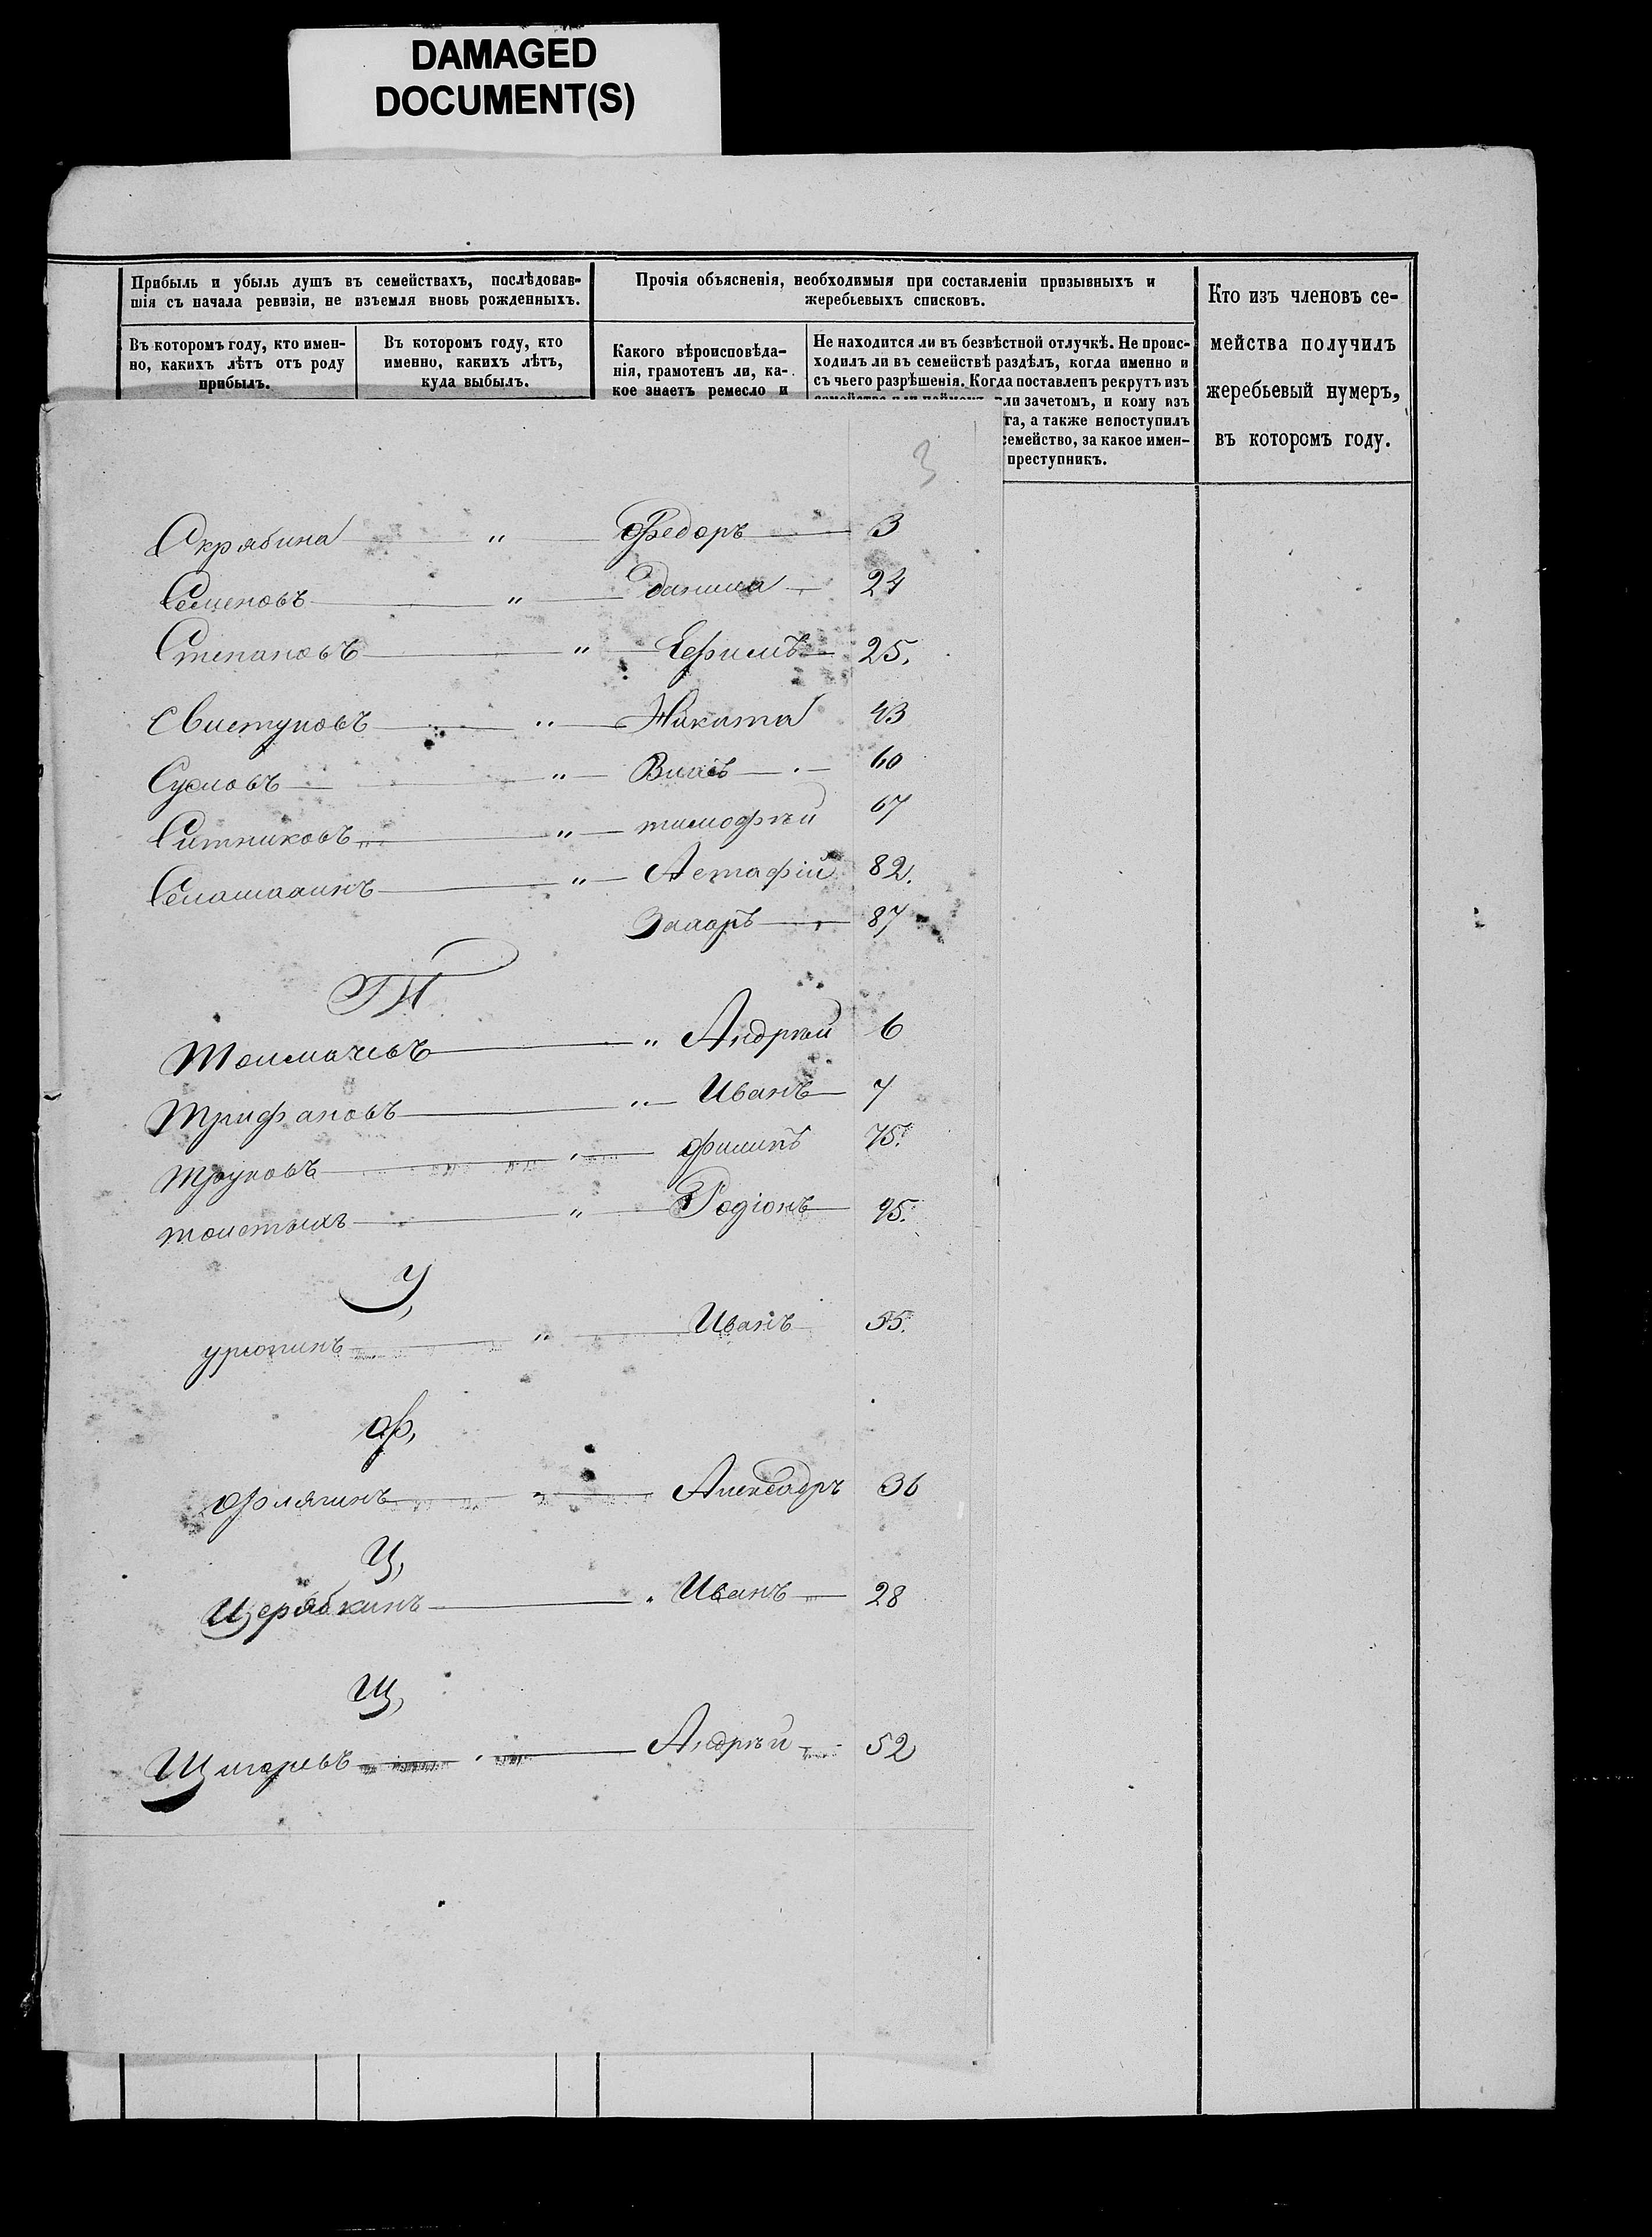 DAMAGED
DOCUMENT(S)
Прибыль и убыль душъ въ семействахъ, послѣдовав-
шія съ начала ревизіи, не изъемля вновь рожденныхъ.
Прочія объясненія, необходимыя при составленіи призывныхъ и
жеребьевыхъ списковъ.
Кто изъ членовъ се-
мейства получилъ
жеребьевый нумеръ,
въ которомъ году.
Въ которомъ году, кто имен-
но, какихъ лѣтъ отъ роду
прибылъ.
Въ которомъ году, кто
именно, какихъ лѣтъ,
куда выбылъ.
Какого вѣроисповѣда-
нія, грамотенъ ли, ка-
кое знаетъ ремесло и
Не находится ли въ безвѣстной отлучкѣ. Не проис-
ходилъ ли въ семействѣ раздѣлъ, когда именно и
съ чьего разрѣшенія. Когда поставленъ рекрутъ изъ
семейства или наймомъ или зачетомъ, и кому изъ
та, а также непоступилъ
семейство, за какое имен-
преступникъ.
3
Скрябина " Федоръ 3
Семеновъ " Данила 24
Степановъ " Ефимъ 25.
Свистуновъ " Никита 43
Сусловъ " Власъ 60
Ситниковъ " тимофѣй 67
" Астафій 82.
Захаръ 87
Т
Толмачевъ " Андрѣй 6
Трифановъ " Иванъ 7
Труновъ " филипъ 75.
толстыхъ " Родіонъ 95.
У,
урюпинъ " Иванъ 55.
Ф,
Фолягинъ " Алексадръ 36
Ц,
Церябкинъ " Иванъ 28
Щ,
Щигоревъ " Андрѣй 52